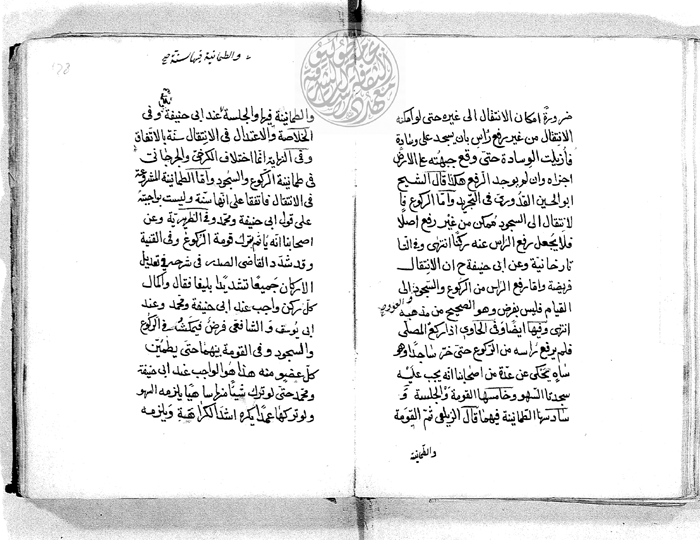 ضرورة امكان الانتقال الى غيره حتى لو امكنه
الانتقال من غير رفع رأس بان سجد على وسادة
فأزيلت الوسادة حتى وقع جبهته على الارض
اجزاه وان لم يوجد الرفع هكذا قال الشيخ
ابو الحسين القدورى فى التجريد واما الركوع فا
لانتقال الى السجود ممكن من غير رفع اصلا
فلا يجعل رفع الرأس عنه ركنا انتهى وفى التا
تارخانية وعن ابى حنيفة ح ان الانتقال
فريضة واما رفع الرأس من الركوع والسجود الى
القيام فليس بفرض وهو الصحيح من مذهبه
انتهى وفيها ايضا وفى الحاوى اذا ركع المصلى
فلم يرفع رأسه من الركوع حتى خر ساجدا وهو
ساه يحكى عن عدة من اصحابنا انه يجب عليه
سجدتا السهو وخامسها القومة والجلسة و
سادسها الطمانينة فيهما قال الزيلعى ثم القومة
والطمانينة
والطمانينة فيها سنة
والطمانينة فيها والجلسة عند ابى حنيفة وفى
الخلاصة والاعتدال فى الانتقال سنة بالاتفاق
وفى البزازية انما اختلاف الكرخى والجرجانى
فى طمانينة الركوع والسجود واما الطمانينة المشروعة
فى الانتقال فاتفقا على انها سنة وليست بواجبة
على قول ابى حنيفة ومحمد وفى الظهيرية وعن
اصحابنا انه يأثم بترك قومة الركوع وفى القنية
وقد شدد القاضى الصدر فى شرحه فى تعديل
الاركان جميعها تشديدا بليغا فقال واكمال
كل ركن واجب عند ابى حنيفة ومحمد وعند
ابى يوسف والشافعى فرض فيمكث فى الركوع
والسجود وفى القومة بينهما حتى يطمئن
كل عضو منه هذا هو الواجب عند ابى حنيفة
ومحمد حتى لو ترك شيئا منها ساهيا يلزمه السهو
ولو تركها عمدا يكره اشد الكراهة ويلزمه